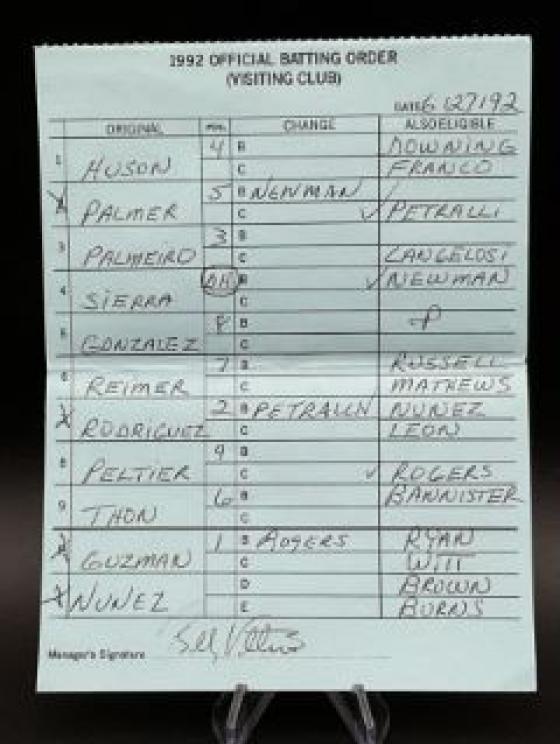 1992 OFFICIAL BATTING ORDER
(VISITING CLUB)
DATE 6/27/92
ORIGINAL POS. CHANGE ALSO ELIGIBLE
1 HUSON 4 B DOWNING
C FRANCO
PALMER 5 B NEWMAN
C ✓ PETRALLI
3 PALMEIRO 3 B
C CANGELOSI
4 SIERRA DH B ✓ NEWMAN
C
5 GONZALEZ 8 B P
C
6 REIMER 7 B RUSSELL
C MATHEWS
RODRIGUEZ 2 B PETRALLI NUNEZ
C LEON
8 PELTIER 9 B
C ✓ ROGERS
9 THON 6 B BANNISTER
C
GUZMAN 1 B ROGERS RYAN
C WITT
NUNEZ D BROWN
E BURNS
Manager's Signature